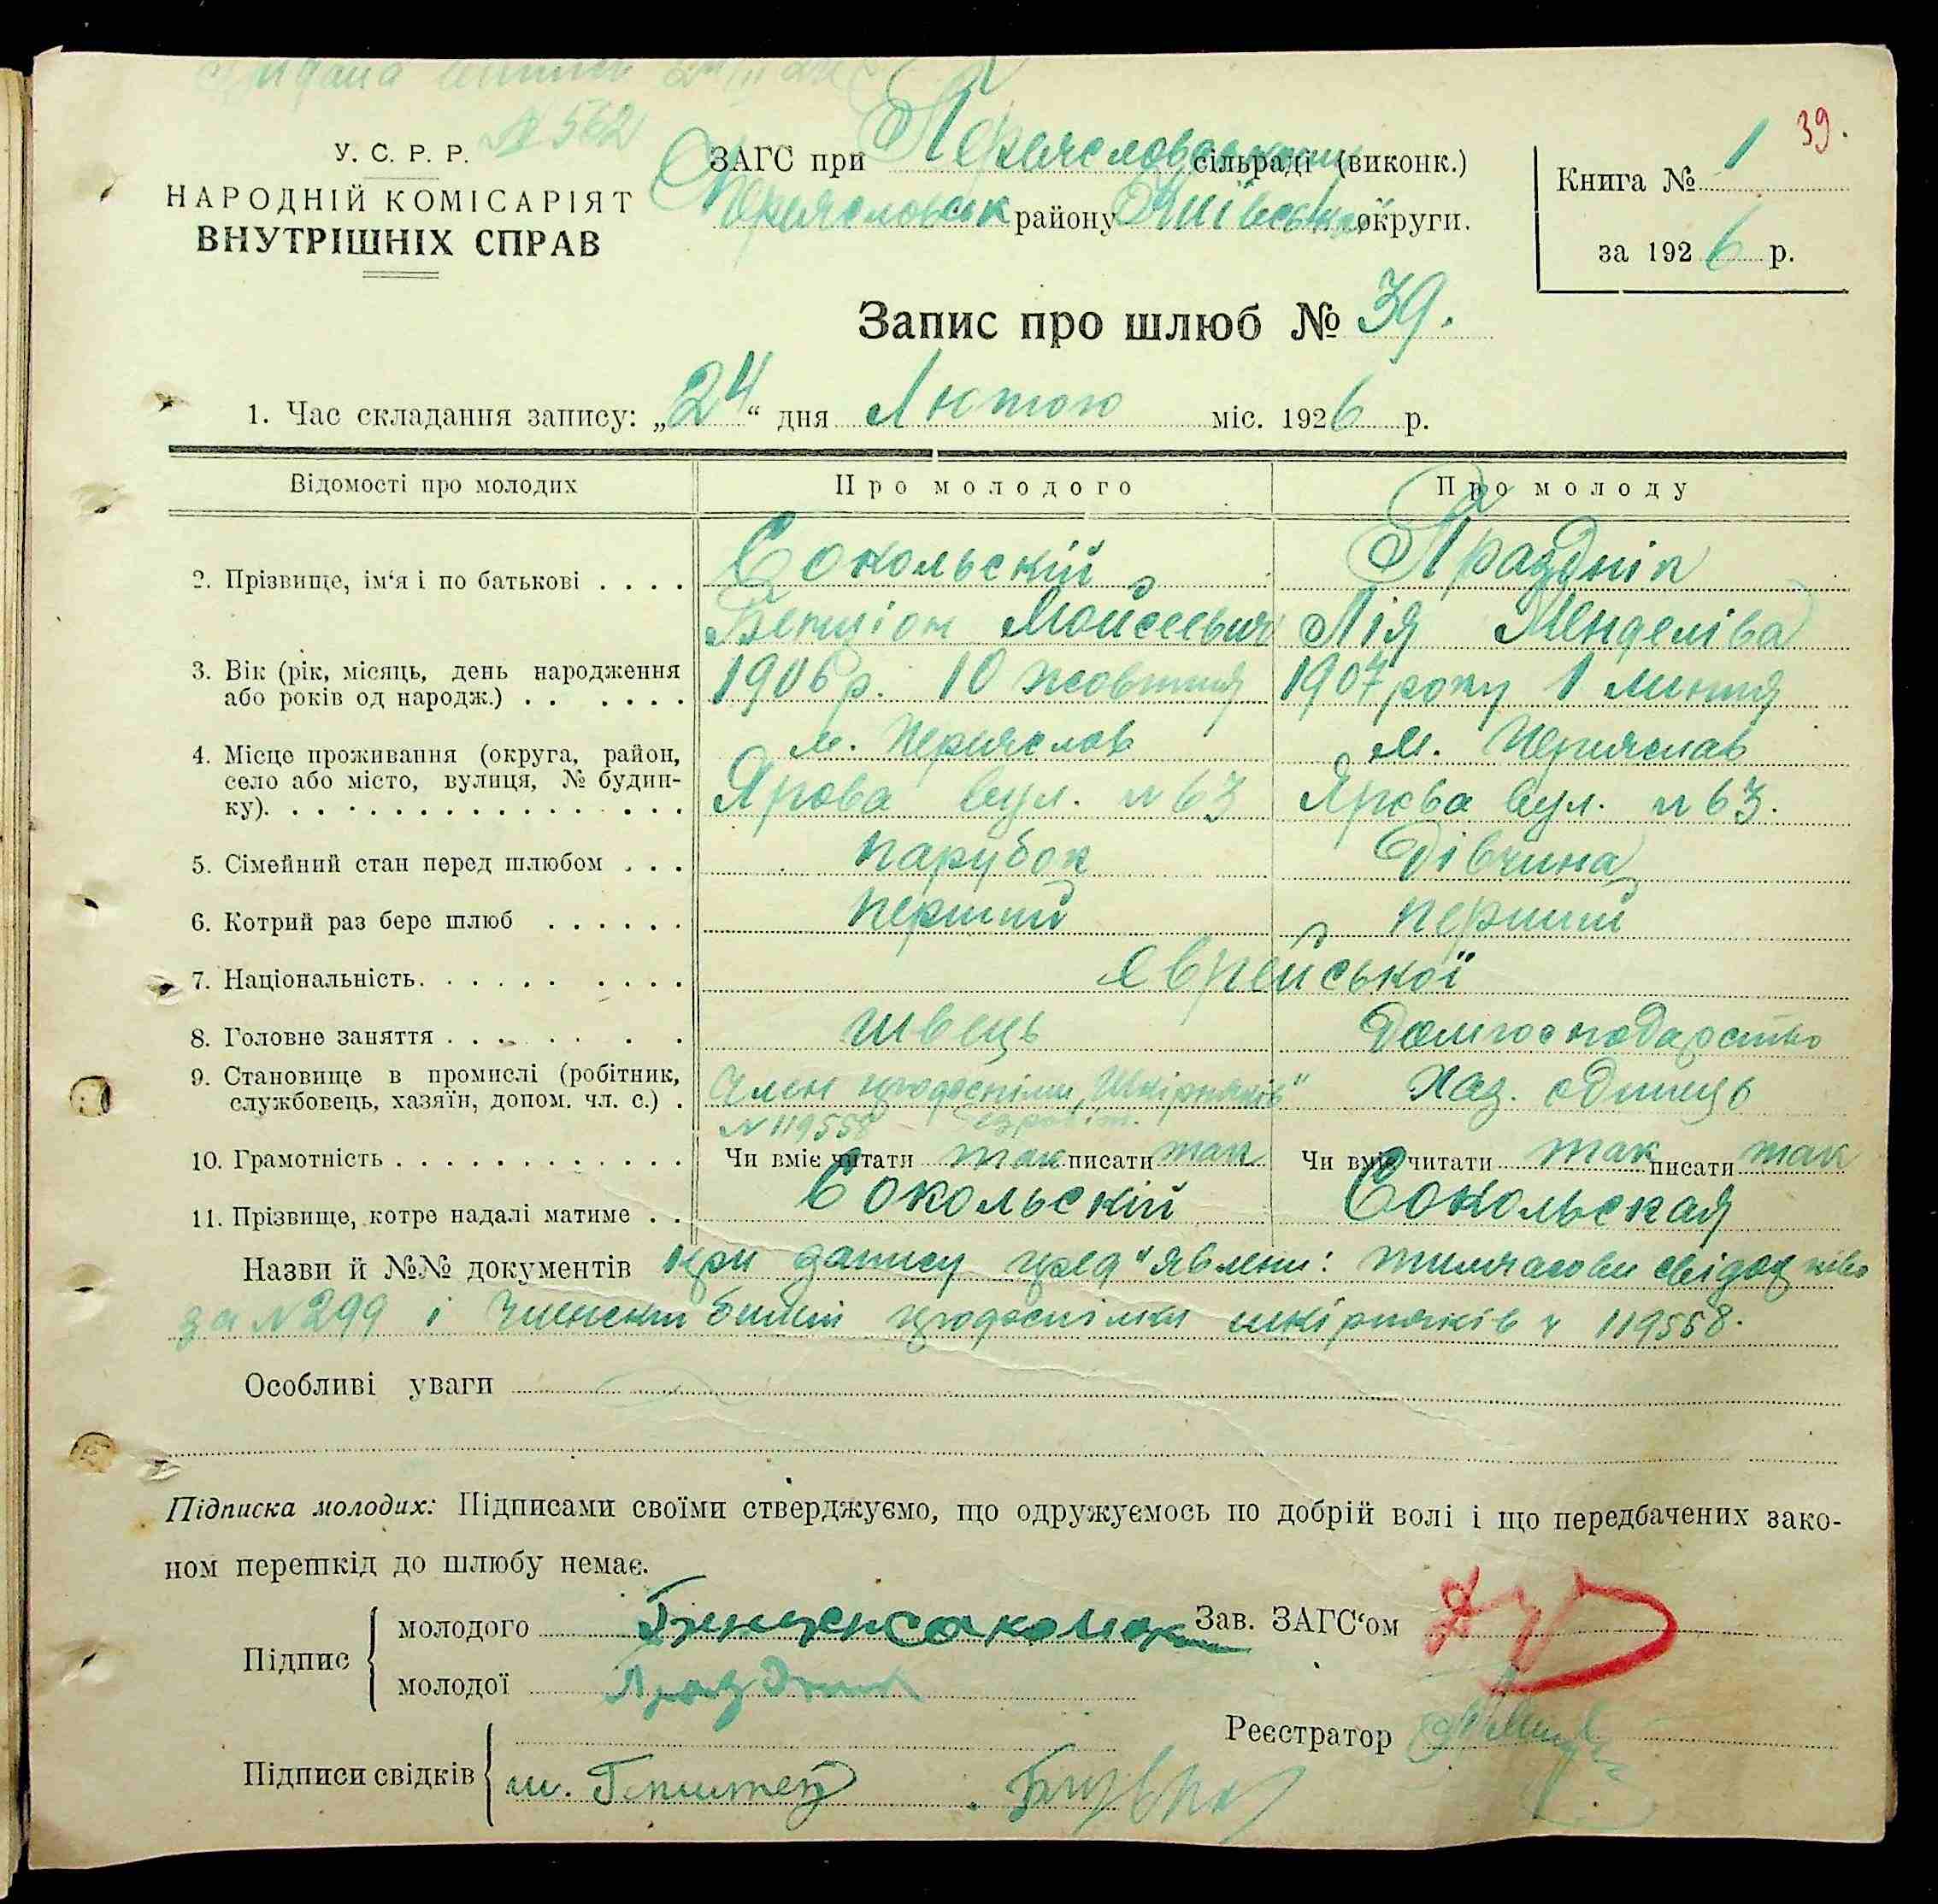 № 562
У. С. Р. Р.
НАРОДНІЙ КОМІСАРІЯТ
ВНУТРІШНІХ СПРАВ
ЗАГС при Переясловському сільраді (виконк.)
Переясловськ району Київської округи.
Книга № 1
39.
за 1926 р.
Запис про шлюб № 39.
1. Час складання запису: „24“ дня Лютого міс. 1926 р.
Відомості про молодих
Про молодого
Про молоду
2. Прізвище, ім‘я і по батькові . . . .
Сокольскій
Бенціон Мойсеевич
Празднік
Лія Менделіва
3. Вік (рік, місяць, день народження
або років од народж.) . . . . . .
1906 р. 10 жовтня
1907 року 1 липня
4. Місце проживання (округа, район,
село або місто, вулиця, № будин-
ку). . . . . . . . . . . . . . . .
м. Переяслов
Ярова вул. № 63
м. Переяслав
Ярова вул. № 63.
5. Сімейний стан перед шлюбом . . .
парубок
Дівчина
6. Котрий раз бере шлюб . . . . . .
перший
перший
7. Національність. . . . . . . . . .
Єврейської
8. Головне заняття . . . . . . .
швець
Домгосподарство
9. Становище в промислі (робітник,
службовець, хазяїн, допом. чл. с.) .
Член профспілки „Шкіряників“
№ 119558 Безробіт.
Хаз. одиниць
10. Грамотність . . . . . . . . . . . .
Чи вміє читати так писати так
Чи вміє читати так писати так
11. Прізвище, котре надалі матиме . .
Сокольскій
Сокольская
Назви й №№ документів при запису пред"явлені: тимчасови свідоцтво
за № 299 і Членский билет профспілки шкіряників ч 119558.
Особливі уваги
Підписка молодих: Підписами своїми стверджуємо, що одружуємось по добрій волі і що передбачених зако-
ном перешкід до шлюбу немає.
Підпис
молодого
Зав. ЗАГС‘ом
молодої Празднік
Реєстратор
Підписи свідків